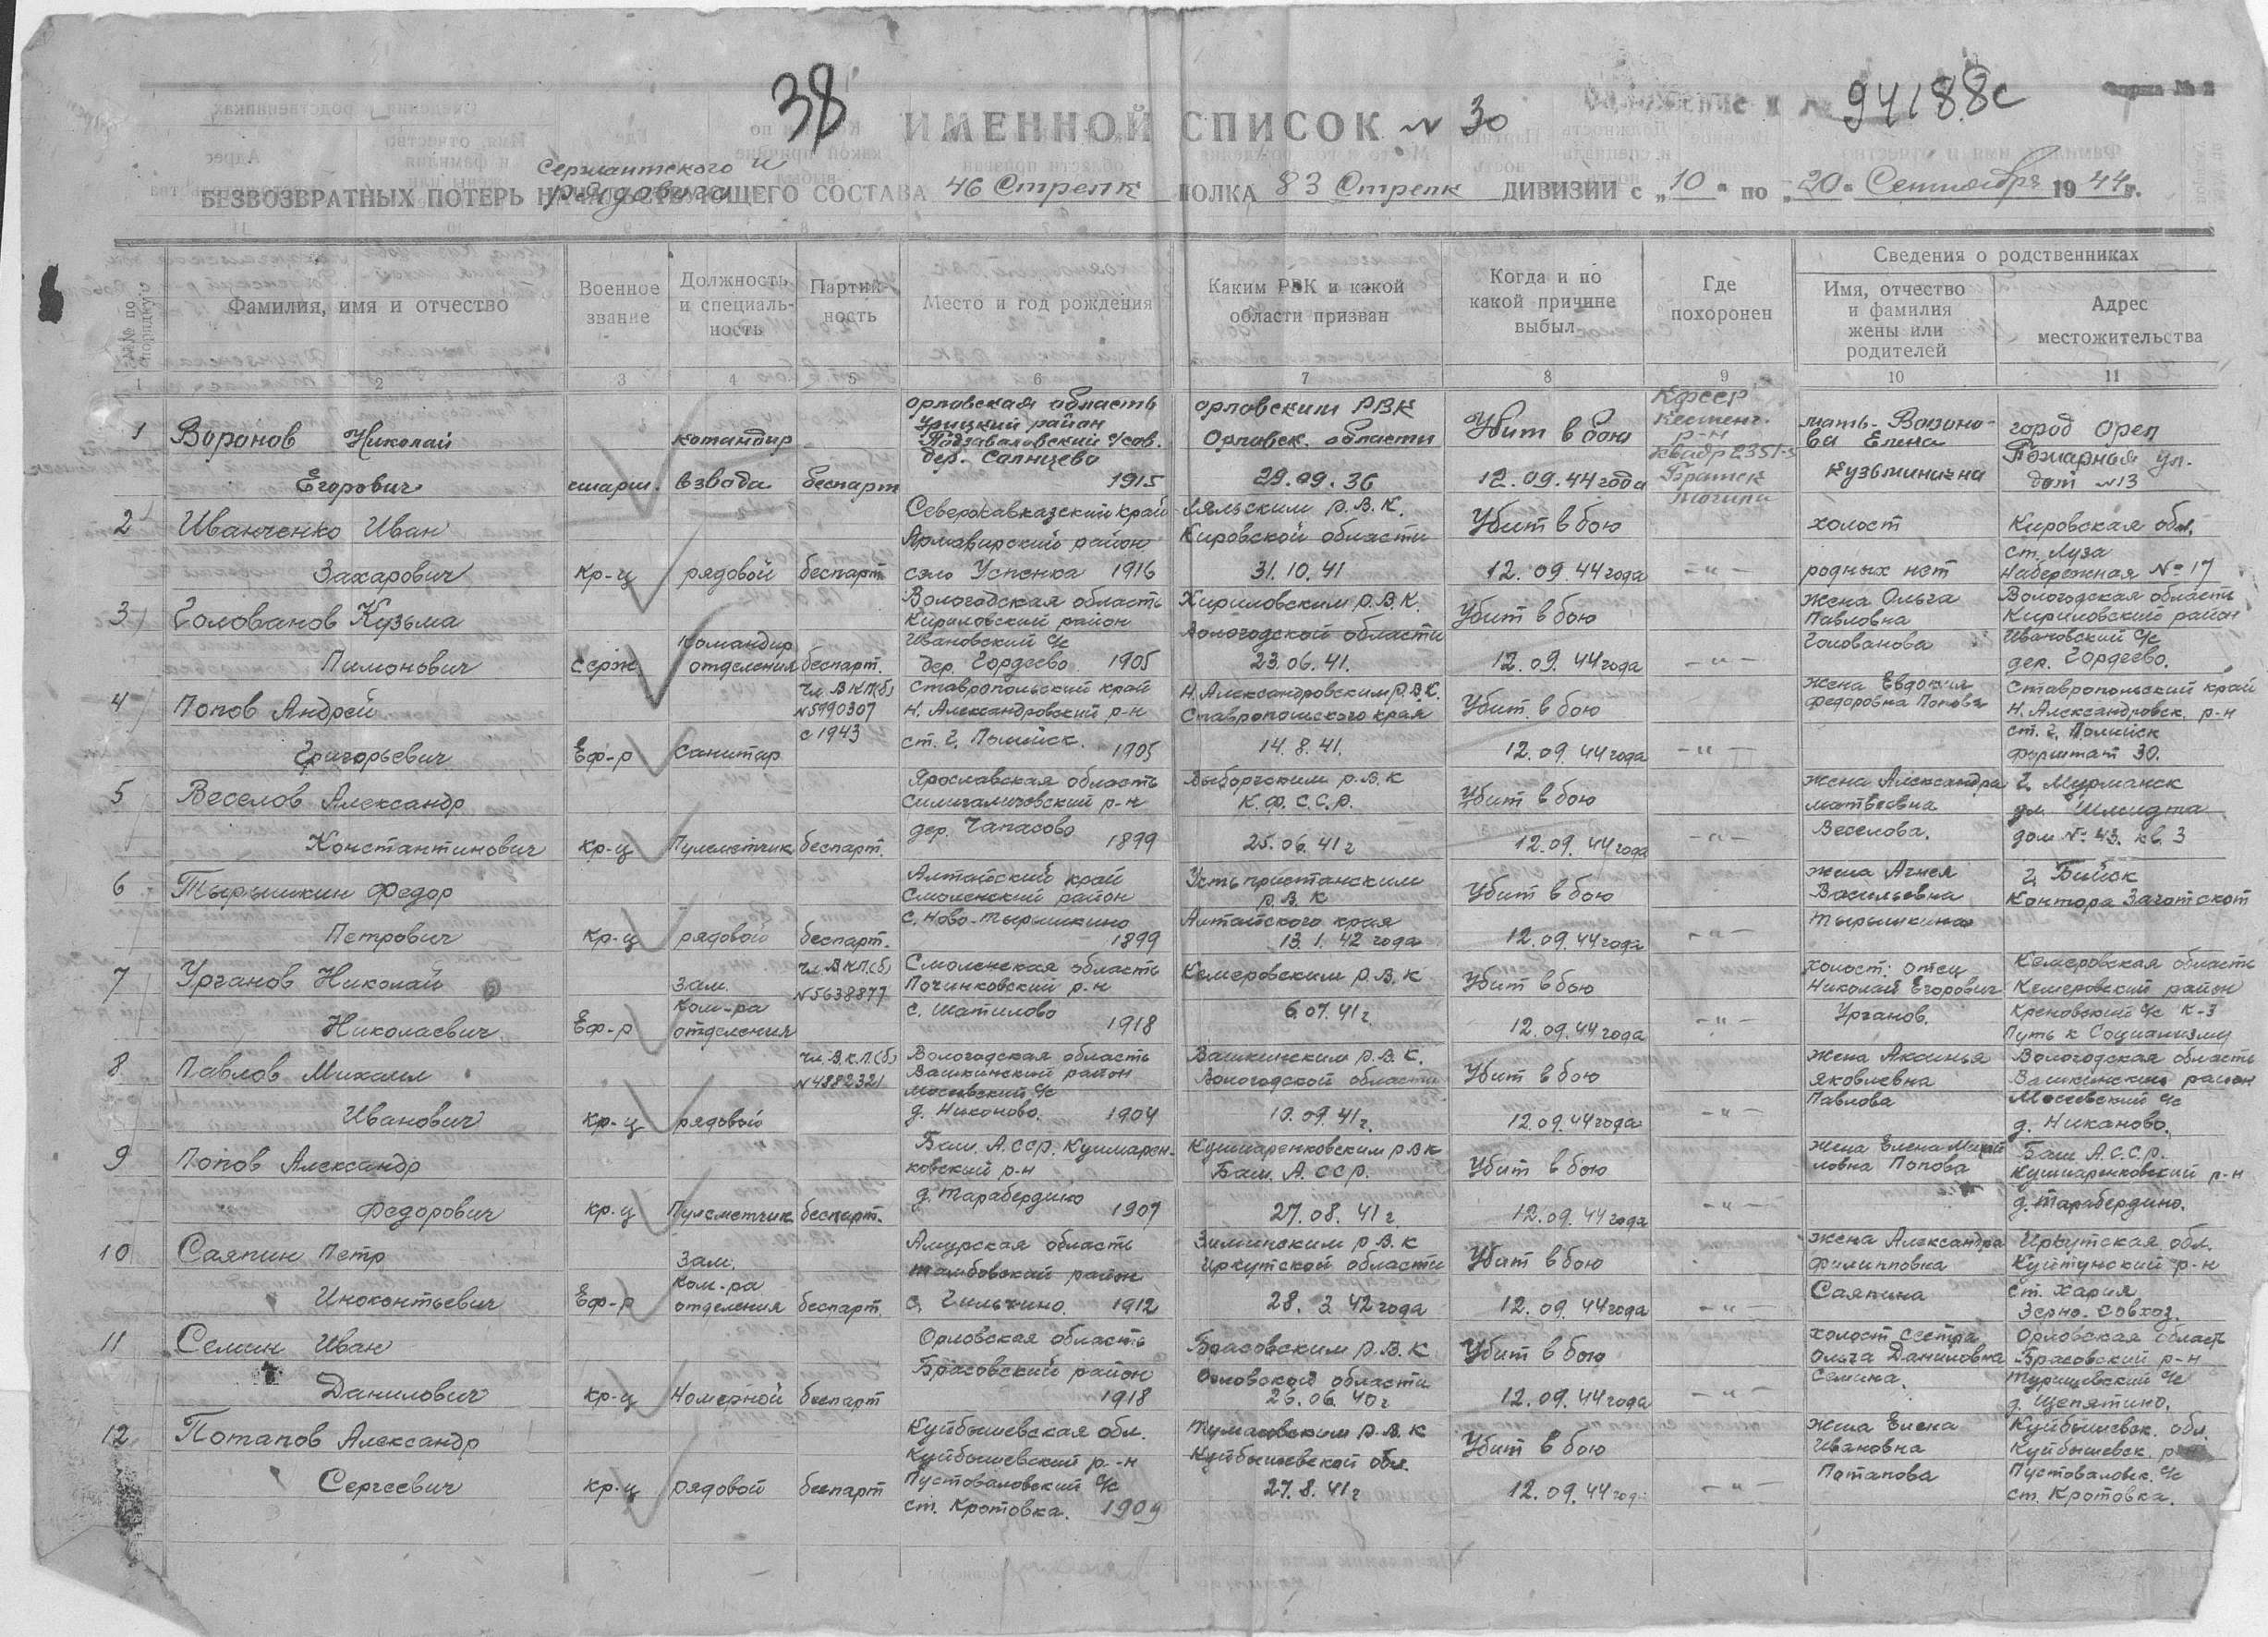 38
ИМЕННОЙ СПИСОК № 30
94188с
Форма № 2
Сержантского и
рядового
БЕЗВОЗВРАТНЫХ ПОТЕРЬ НАЧАЛЬСТВУЮЩЕГО СОСТАВА 46 Стрелк ПОЛКА 83 Стрелк ДИВИЗИИ с „10" по „20" Сентября 1944 г.
№№ по порядку
Фамилия, имя и отчество
Военное звание
Должность и специаль-ность
Партий-ность
Место и год рождения
Каким РВК и какой области призван
Когда и по какой причине выбыл
Где похоронен
Сведения о родственниках
Имя, отчество и фамилия жены или родителей
Адрес местожительства
1 2 3 4 5 6 7 8 9 10 11
1 Воронов Николай
Егорович
старш.
командир
взвода
беспарт
орловская область
Урицкий район
дер. Солнцево
1915
орловским РВК
Орловск. области
29.09.36
Убит в бою
12.09.44 года
Кфсср
Кестенг.
р-н
Братск
могила
мать- Вороно-
ва Елена
Кузьминична
город Орел
Пожарная ул.
дом №13
2 Иванченко Иван
Захарович
кр-ц
рядовой
беспарт
Северокавказский край
Армавирский район
село Успенка 1916
Лальским Р.В.К.
Кировской области
31.10.41
Убит в бою
12.09.44 года
-"-
холост
родных нет
Кировская обл.
ст. Луза
Набережная № 17
3 Голованов Кузьма
Пимонович
Серж
Командир
отделения
беспарт.
Вологодская область
Кириловский район
Ивановский с/с
дер. Гордеево 1905
Кириловским Р.В.К.
Вологодской области
23.06.41.
Убит в бою
12.09.44 года
-"-
Жена Ольга
Павловна
Голованова
Вологодская область
Кириловский район
Ивановский с/с
дер. Гордеево.
4 Попов Андрей
Григорьевич
Еф-р
Санитар
Чл. ВКП(б)
№5990307
с 1943
Ставропольский край
Н. Александровский р-н
1905
Н. Александровским Р.В.К.
Ставропольского края
14.8.41.
Убит в бою
12.09.44 года
-"-
Жена Евдокия
Федоровна Попова
Ставропольский край
Н. Александровск. р-н
форштат 30.
5 Веселов Александр
Константинович
кр-ц
Пулеметчик
беспарт.
Ярославская область
Солигаличовский р-н
дер. Чапасово
1899
Выборгским Р.В.К
К.Ф.С.С.Р.
25.06.41 г
Убит в бою
12.09.44 года
-"-
Жена Александра
матвеевна
Веселова.
г. Мурманск
ул Шмидта
дом № 43. кв. 3
6 Тырышкин Федор
Петрович
кр-ц
рядовой
беспарт.
Алтайский край
Смоленский район
с. Ново-тырышкино
1899
Устьпристанским
Р.В.К
Алтайского края
13.1.42 года
Убит в бою
12.09.44 года
-"-
Васильевна
тырышкина
г. Бийск
Контора Заготскот
7 Урганов Николай
Николаевич
Еф-р
Зам.
Ком-ра
отделения
Чл. ВКП.(б)
№5638877
Смоленская область
Починковский р-н
с. Шатилово
1918
Кемеровским Р.В.К
6.07.41 г.
Убит в бою
12.09.44 года
-"-
холост: отец
Николай Егорович
Урганов.
Кемеровская область
Кемеровский район
с/с к-з
Путь к Социализму
8 Павлов Михаил
Иванович
кр-ц
рядовой
Чл. В.К.П.(б)
№4882321
Вологодская область
Вашкинский район
с/с
д. Никоново. 1904
Вашкинским Р.В.К.
Вологодской области
10.09.41 г.
Убит в бою
12.09.44 года
-"-
Жена Аксинья
Яковлевна
Павлова
Вологодская область
Вашкинский район
с/с
д. Никаново.
9 Попов Александр
Федорович
кр-ц
Пулеметчик
беспарт.
Баш. А.ССР. Кушнарен-
ковский р-н
д. тарабердино
1907
Кушнаренковским РВК
Баш. А.ССР.
27.08.41 г.
Убит в бою
12.09.44 года
-"-
Жена Елена Михай
ловна Попова
Баш А.С.С.Р.
Кушнаренковский р-н
д. тарабердино.
10 Саяпин Петр
Инокентьевич
Еф-р
Зам.
Ком-ра
отделения
беспарт.
Амурская область
тамбовский район
с. Гильчино. 1912
Зиминским Р.В.К
Иркутской области
28.2 42 года
Убит в бою
12.09.44 года
-"-
Жена Александра
Филипповна
Саяпина
Иркутская обл.
Куйтунский р-н
ст. Харик
Зерно. Совхоз.
11 Семин Иван
Данилович
кр-ц
Номерной
беспарт
Орловская область
Брасовский район
1918
Брасовским Р.В.К
Орловской области
26.06.40 г
Убит в бою
12.09.44 года
-"-
холост сестра
Ольга Даниловна
Семина.
Орловская област
Брасовский р-н
с/с
д. Щепятино.
12 Потапов Александр
Сергеевич
кр-ц
рядовой
беспарт
Куйбышевская обл.
Куйбышевский р-н
Пустоваловский с/с
ст. Кротовка. 1909
Р.В.К
Куйбышевской обл.
27.8.41 г
Убит в бою
12.09.44 года
-"-
Жена Елена
Ивановна
Потапова
Куйбышевск. обл.
Куйбышевск. р-н
Пустоваловск. с/с
ст. Кротовка.